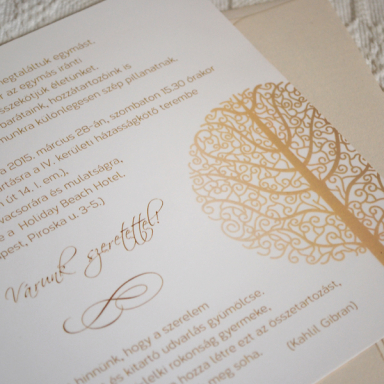 egtaláltuk egymást.
az egymás iránti
sszekötjük életünket.
barátaink, hozzátartozóink is
munkra különlegesen szép pillanatnak.
a 2015. március 28-án, szombaton 15.30 órakor
artásra a IV. kerületi házasságkötő terembe
n út 14. I. em.),
vacsorára és mulatságra,
e a Holiday Beach Hotel.
pest, Piroska u. 3-5.)
Várunk szeretettel!
hinnünk, hogy a szerelem
és kitartó udvarlás gyümölcse.
lelki rokonság gyermeke,
hozza létre ezt az összetartozást,
meg soha.
(Kahlil Gibran)